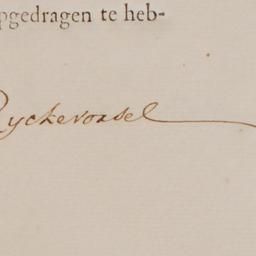 opgedragen te heb-
Ryckevorsel